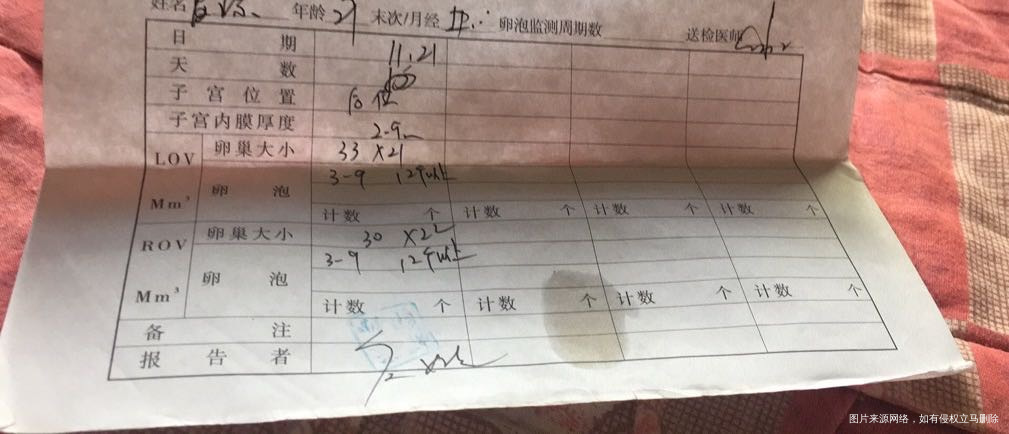 姓名 年龄 27 末次/月经 卵泡监测周期数 送检医师
日期 11.21
天数
子宫位置 后位
子宫内膜厚度 2.9
LOV Mm³ 卵巢大小 33×21
卵泡 3-9 12个以上
计数 个 计数 个 计数 个 计数 个
ROV Mm³ 卵巢大小 30×22
卵泡 3-9 12个以上
计数 个 计数 个 计数 个 计数 个
备注
报告者
图片来源网络，如有侵权立马删除